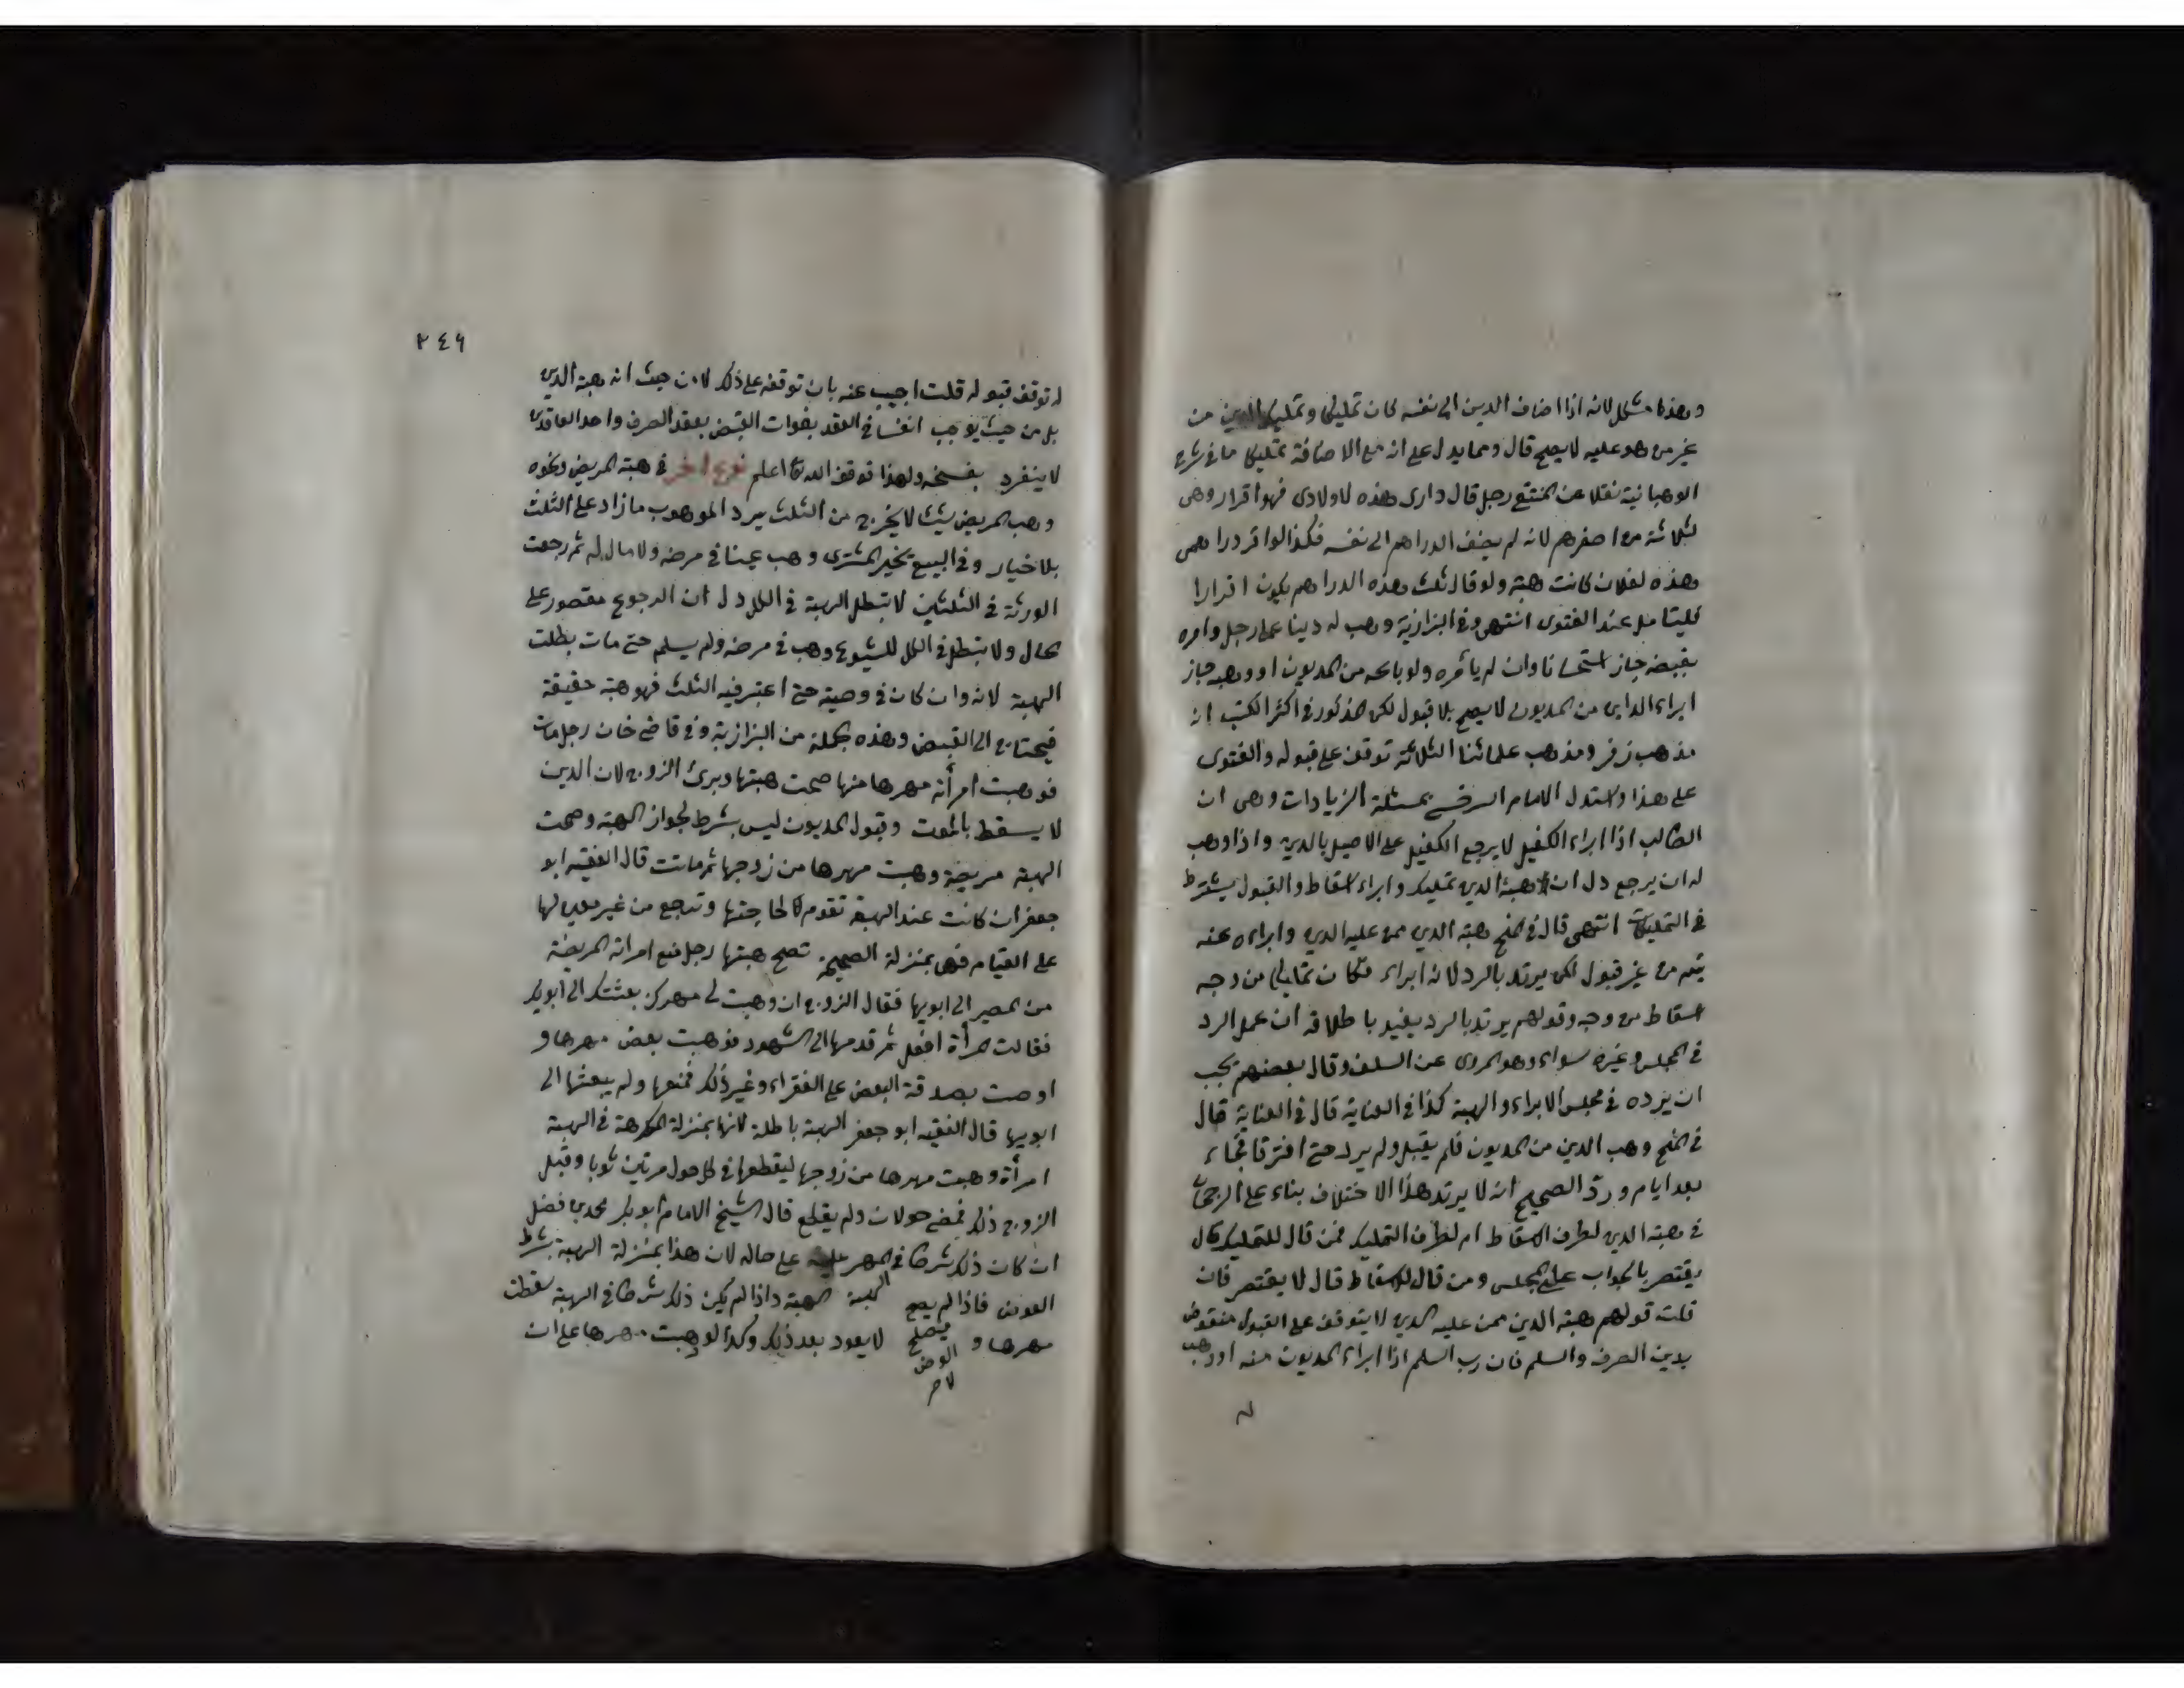 وهذا مشكل لانه اذا اضاف الدين الى نفسه كان تمليكا وتمليك الدين من
غير من هو عليه لا يصح قال ومما يدل على انه مع الاضافة تمليكا ما في شرح
الوهبانية نقلا عن المنتقى رجل قال دارى هذه لاولادى فهو اقرار وهى
لثلاثة من اصغرهم لانه لم يضف الدراهم الى نفسه فكذا لو اقر دراهمى
هذه لفلان كانت هبة ولو قال ثلث هذه الدراهم يكون اقرارا
فليتامل عند الفتوى انتهى وفى البزازية وهب له دينا على رجل وامره
بقبضه جاز استحسانا وان لم يامره ولو باعه من المديون او وهبه جاز
ابراء الداين من المديون لا يصح بلا قبول لكن المذكور فى اكثر الكتب انه
مذهب زفر ومذهب علمائنا الثلاثة توقف على قبوله والفتوى
على هذا واستدل الامام السرخسى بمسئلة الزيادات وهى ان
الطالب اذا ابراء الكفيل لا يرجع الكفيل على الاصيل بالدين واذا وهب
له ان يرجع دل ان هبة الدين تمليك وابراء اسقاط والقبول يشترط
فى التمليكات انتهى قال فى المنح هبة الدين ممن عليه الدين وابراءه عنه
يتم من غير قبول لكن يرتد بالرد لانه ابراء فكان تمليكا من وجه
اسقاط من وجه وقولهم يرتد بالرد يفيد باطلاقه ان عمل الرد
فى المجلس وغيره سواء وهو المروى عن السلف وقال بعضهم يجب
ان يرده فى مجلس الابراء والهبة كذا فى العناية قال فى العناية قال
فى المنح وهب الدين من المديون فلم يقبل ولم يرد حتى افترقا فجاء
بعد ايام ورد الصحيح انه لا يرتد هذا الاختلاف بناء على الرجحان
فى هبة الدين لطرف الاسقاط ام لطرف التمليك فمن قال للتمليك قال
يقتصر بالجواب على المجلس ومن قال للاسقاط قال لا يقتصر فان
قلت قولهم هبة الدين ممن عليه الدين لا يتوقف على القبول منقوض
بدين الصرف والسلم فان رب السلم اذا ابراء المديون منه او وهب
له
٣٤٦
له توقف قبوله قلت اجيب عنه بان توقفه على ذلك لا من حيث انه هبة الدين
بل من حيث يوجب انفساخ العقد بفوات القبض بعقد الصرف واحد العاقدين
لا ينفرد بفسخه ولهذا توقف الله اعلم نوع اخر فى هبة المريض ونحوه
وهب المريض شيئا لا يخرج من الثلث يرد الموهوب ما زاد على الثلث
بلا خيار وفى البيع يخير المشترى وهب عينا فى مرضه ولا مال له ثم رجعت
الورثة فى الثلثين لا تبطل الهبة فى الكل دل ان الرجوع مقصور على
الحال ولا تبطل فى الكل للشيوع وهب فى مرضه ولم يسلم حتى مات بطلت
الهبة لانه وان كان فى وصية حتى اعتبر فيه الثلث فهو هبة حقيقة
فيحتاج الى القبض وهذه جملة من البزازية وفى قاضى خان رجل مات
فوهبت امرأته مهرها منها صحت هبتها وبرئ الزوج لان الدين
لا يسقط بالموت وقبول المديون ليس بشرط لجواز الهبة وصحت
الهبة مريضة وهبت مهرها من زوجها ثم ماتت قال الفقيه ابو
جعفر ان كانت عند الهبة تقوم لحاجتها وترجع من غير معين لها
على القيام فهى بمنزلة الصحيحة تصح هبتها رجل منع امراته المريضة
من المصير الى ابويها فقال الزوج ان وهبت لى مهرك بعثتك الى ابويك
فقالت المرأة افعل ثم قدمها الى الشهود فوهبت بعض مهرها و
اوصت بصدقة البعض على الفقراء وغير ذلك فمنعها ولم يبعثها الى
ابويها قال الفقيه ابو جعفر الهبة باطلة لانها بمنزلة المكرهة فى الهبة
امرأة وهبت مهرها من زوجها ليقطعها فى كل حول مرتين ثوبا وقبل
الزوج ذلك فمضى حولان ولم يقطع قال الشيخ الامام ابو بكر محمد بن فضل
ان كان ذلك شرطا فى المهر على حاله لان هذا بمنزلة الهبة بشرط
العوض فاذا لم يصح الهبة واذا لم يكن ذلك شرطا فى الهبة سقطت
مهرها و لا يعود بعد ذلك وكذا لو وهبت مهرها على ان